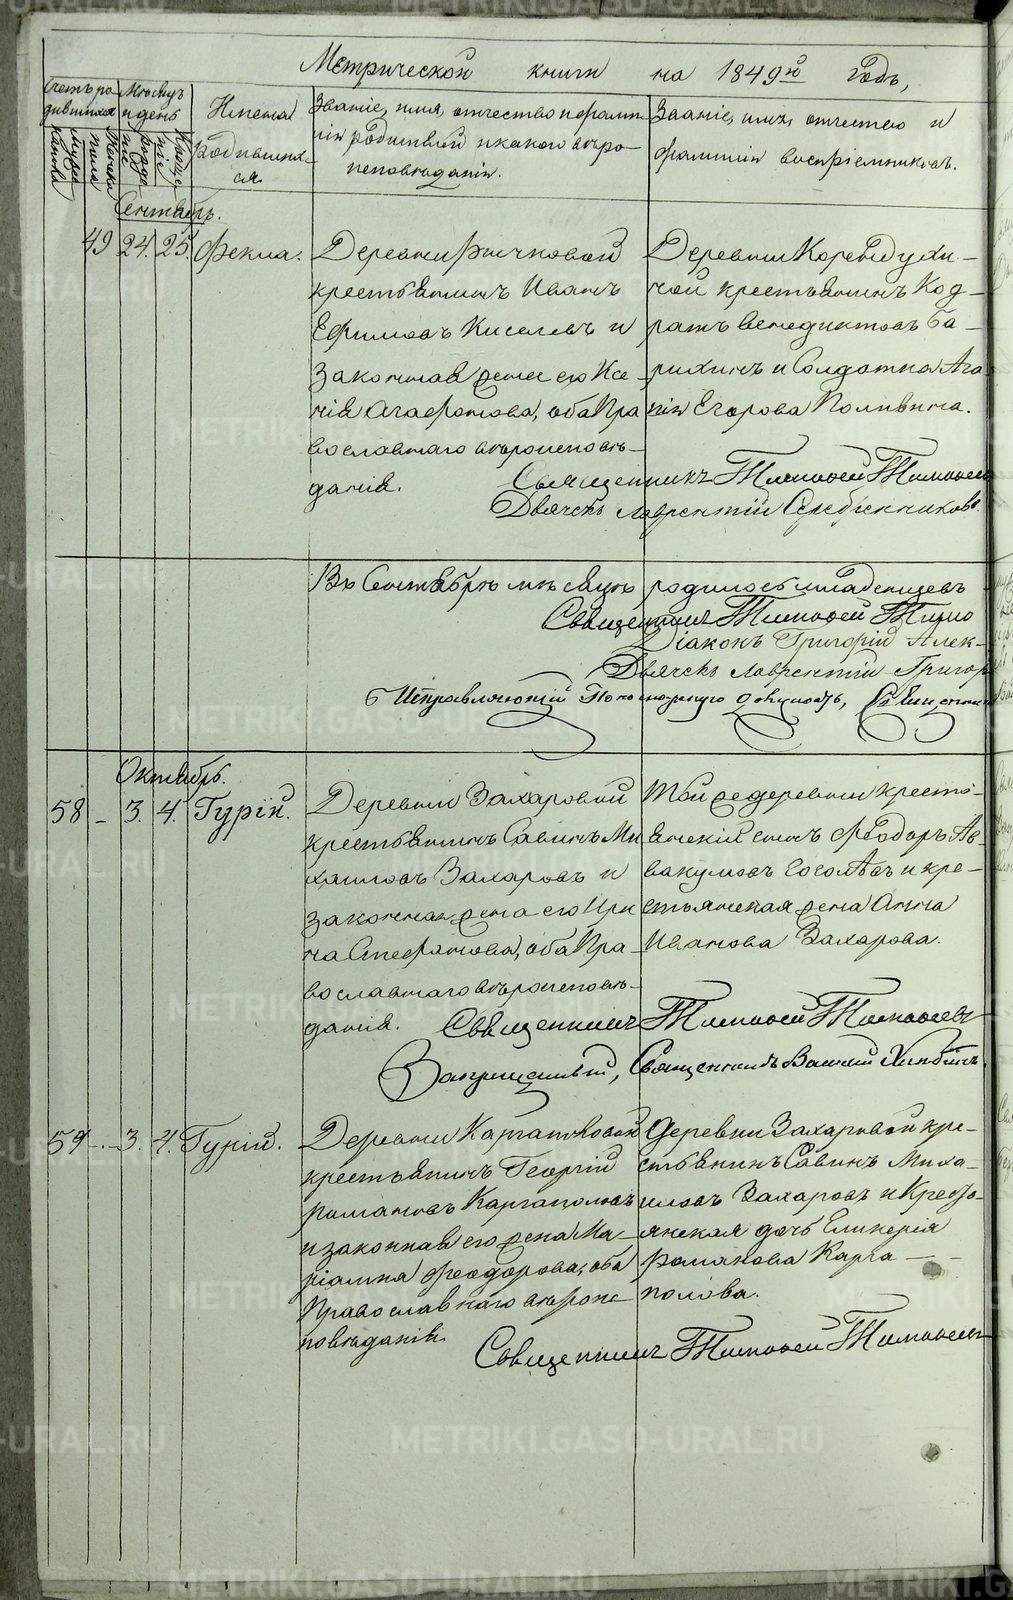 Метрической книги на 1849й Годъ,
Счетъ ро
дившихся
Мужеска
пола
Женска
Мѣсяцъ
и день
рожде
нія
Креще
нія
Имена
Родивших
ся.
Званіе, имя, отчество и фамил
ія родителей и какого вѣро
исповѣданія.
Званіе, имя, отчество и
фамилія воспріемниковъ.
Сентябрь.
49 24. 25. Фекла.
Деревни
крестьянинъ Иванъ
Ефимовъ Киселевъ и
законная жена его Ксе
нія Агафонова, оба Пра
вославнаго вѣроисповѣ-
данія.
Деревни
ной крестьянинъ Код-
ратъ Венедиктовъ Ба-
рихинъ и Солдатка Ага
пія Егорова
Священникъ Тимофей Тимофеев
Дьячекъ Лаврентій Серебренниковъ
Въ Сентябрѣ мѣсяцѣ родилось младенцевъ
Священникъ Тимофей Тимо
Діаконъ Григорій Алек-
Дьячекъ Лаврентій Григор
Исправляющій Священни
Октябрь.
58 - 3. 4. Гурій.
Деревни Захаровой
крестьянинъ Савинъ Ми
хаиловъ Захаровъ и
законная жена его Ири
на Стефанова, оба Пра
вославнаго вѣроисповѣ-
данія.
Той же деревни кресть-
янскій сынъ Феодоръ Ав-
вакумовъ и кре-
стьянская жена Анна
Иванова Захарова.
Священникъ Тимофей Тимофеевъ
Священникъ Василій
59 - 3. 4. Гурій.
Деревни Каргаполовой
крестьянинъ Георгій
Романовъ Каргаполовъ
и законная его жена Ма-
ріамна Феодорова, оба
Православнаго вѣроис-
повѣданія.
Деревни Захаровой кре-
стьянинъ Савинъ Миха-
иловъ Захаровъ и Кресть-
янская дочь Гликерія
Романова Карга-
полова.
Священникъ Тимофей Тимофеевъ
METRIKI.GASO-URAL.RU